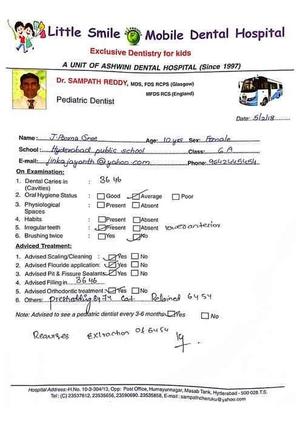 Little Smile Mobile Dental Hospital
Exclusive Dentistry for kids
A UNIT OF ASHWINI DENTAL HOSPITAL (Since 1997)
Dr. SAMPATH REDDY, MDS, FDS RCPS (Glasgow)
MFDS RCS (England)
Pediatric Dentist
Date: 5/2/18
Name: Age: 10 yes Sex: Female
School: Hyderabad public school Class: 6 A
E-mail: jinkajayanth@yahoo.com Phone:
On Examination:
1. Dental Caries in : 36 46
(Cavities)
2. Oral Hygiene Status : Good Average Poor
3. Physiological : Present Absent
Spaces
4. Habits : Present Absent
5. Irregular teeth : Present Absent lower anterior
6. Brushing twice : Yes No
Adviced Treatment:
1. Advised Scaling/Cleaning : Yes No
2. Advised Flouride application: Yes No
3. Advised Pit & Fissure Sealants: Yes No
4. Advised Filling in 36 46
5. Advised Orthodontic treatment : Yes No
6. Others: Retained 64 54
Note: Advised to see a pediatric dentist every 3-6 months: Yes No
Requires Extraction of 64 54
Hospital Address: H.No. 10-3-304/13, Opp: Post Office, Humayunnagar, Masab Tank, Hyderabad - 500 028 T.S.
Tel: (C) 23537612, 23535656, 23590690, 23535858, E-mail : sampathcheruku@yahoo.com